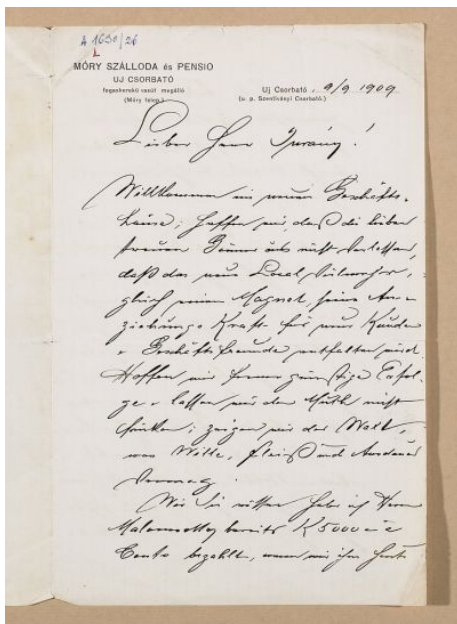 A 1690/26
MÓRY SZÁLLODA és PENSIO
UJ CSORBATÓ
fogaskerekü vasút megálló
(Móry telep.)
Uj Csorbató, 9/9 1909
(u. p. Szentiványi Csorbató.)
Lieber Herr Iurány!
Willkommen im neuen Geschäfts-
hause; hoffen wir, daß die lieben
treuen Gäste uns nicht verlassen,
daß das neue Local vielmehr,
gleich einem Magnet, seine An-
ziehungs Kraft für neue Kunden
u Geschäftsfreunde entfalten wird.
Hoffen wir ferner günstige Erfol-
ge u lassen wir den Muth nicht
sinken; zeigen wir der Welt,
was Wille, Fleiß und Ausdauer
vermag.
Wie Sie wissen habe ich Herrn
bereits K 5000 — à
Conto bezahlt, wenn wir ihm heute